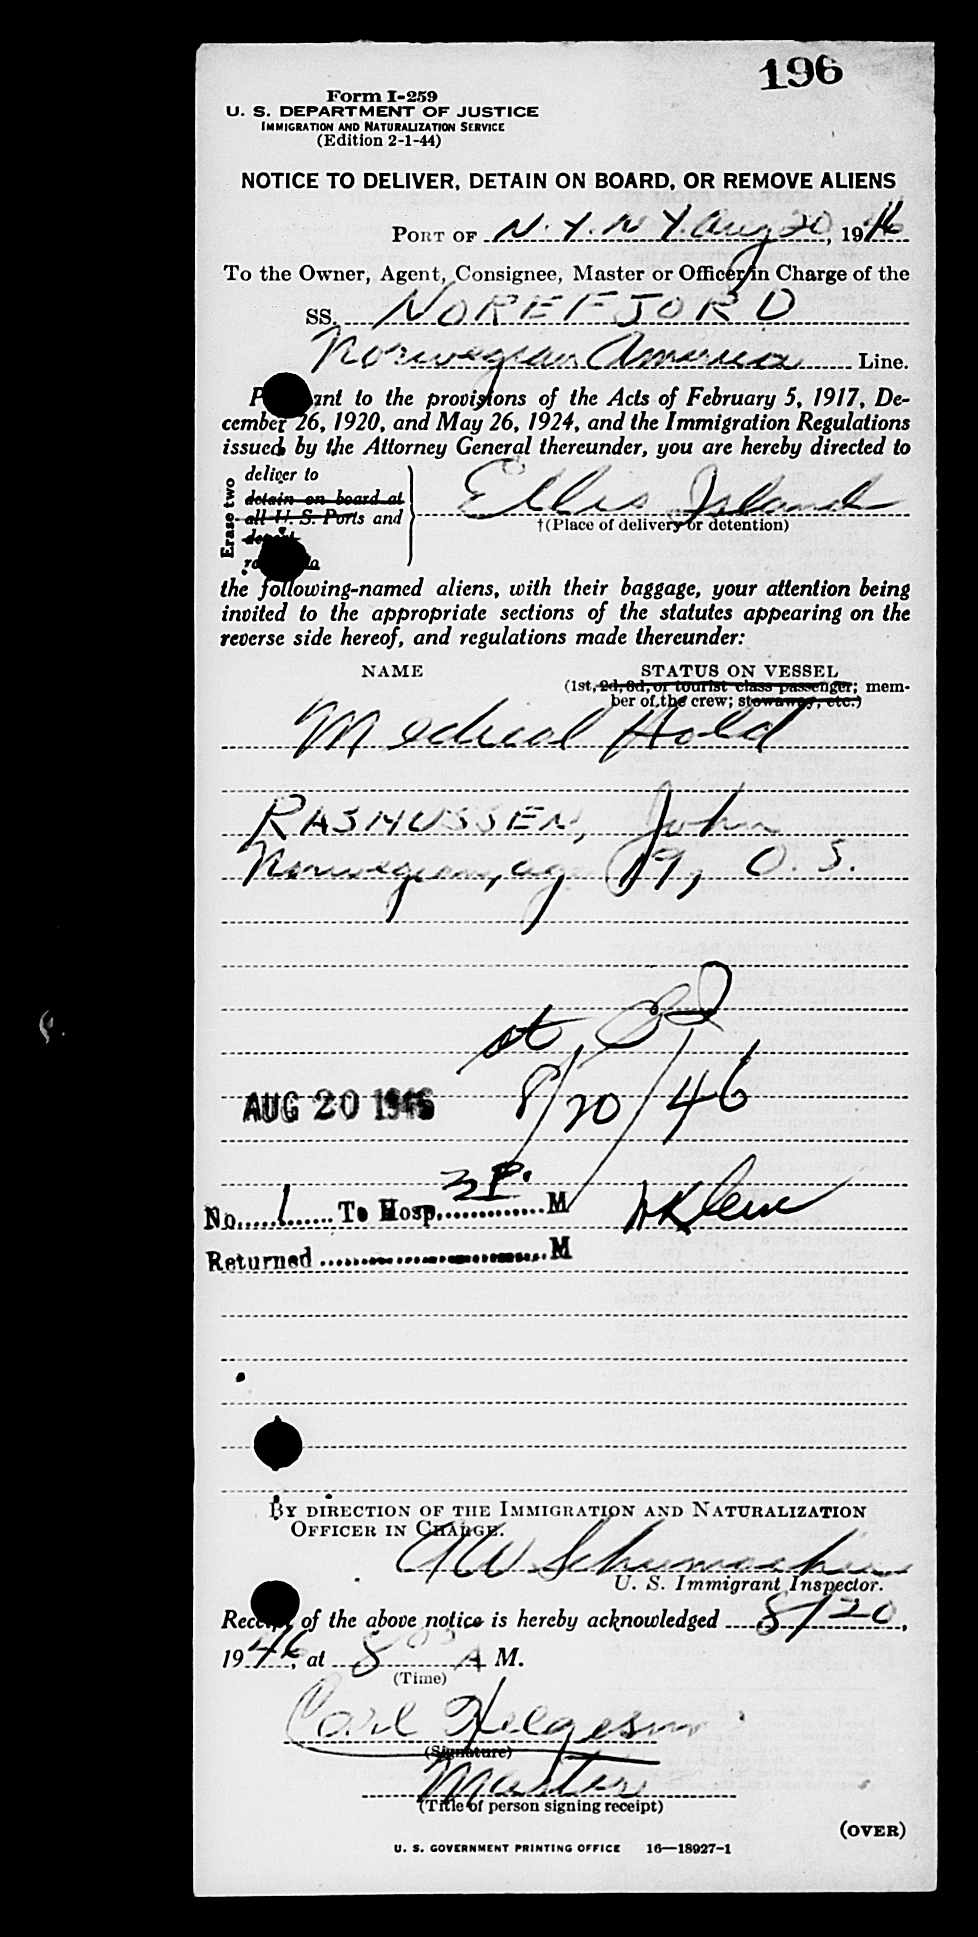 196
Form I-259
U. S. DEPARTMENT OF JUSTICE
IMMIGRATION AND NATURALIZATION SERVICE
(Edition 2-1-44)
NOTICE TO DELIVER, DETAIN ON BOARD, OR REMOVE ALIENS
PORT OF N. Y. N Y. Aug 20, 1946
To the Owner, Agent, Consignee, Master or Officer in Charge of the
SS. NOREFJORD
Norwegian America Line.
P ant to the provisions of the Acts of February 5, 1917, De-
cember 26, 1920, and May 26, 1924, and the Immigration Regulations
issued by the Attorney General thereunder, you are hereby directed to
Erase two
deliver to
detain on board at
all U. S. Ports and
Ellis Island
†(Place of delivery or detention)
the following-named aliens, with their baggage, your attention being
invited to the appropriate sections of the statutes appearing on the
reverse side hereof, and regulations made thereunder:
NAME STATUS ON VESSEL
(1st, 2d, 3d, or tourist class passenger; mem-
ber of the crew; stowaway, etc.)
Medical Hold
RASMUSSEN, John
Norwegian, age 19, O. S.
st
AUG 20 1946 8/20/46
No. 1 To Hosp. 3 P. M
Returned M
BY DIRECTION OF THE IMMIGRATION AND NATURALIZATION
OFFICER IN CHARGE.
A W Schumacher
U. S. Immigrant Inspector.
Receipt of the above notice is hereby acknowledged 8/20,
1946, at 8 00 A M.
(Time)
Carl Helgesen
(Signature)
Master
(Title of person signing receipt)
(OVER)
U. S. GOVERNMENT PRINTING OFFICE 16—18927-1